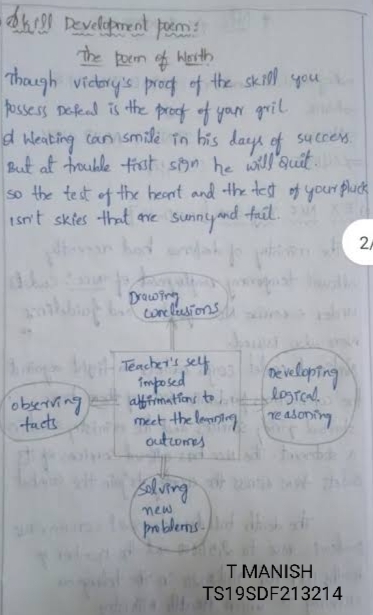 Skill Development poem:
The poem of Worth
Though victory's proof of the skill you
Possess Defeat is the proof of your gril
A Weating can smile in his days of success.
But at trouble first sign he will Quit.
so the test of the heart and the test of your pluck
isn't skies that are sunny and fail.
2/
Drawing
conclusions
Teacher's self
imposed
affirmations to
meet the learning
outcomes
observing
facts
Developing
logical
reasoning
solving
new
problems.
T MANISH
TS19SDF213214